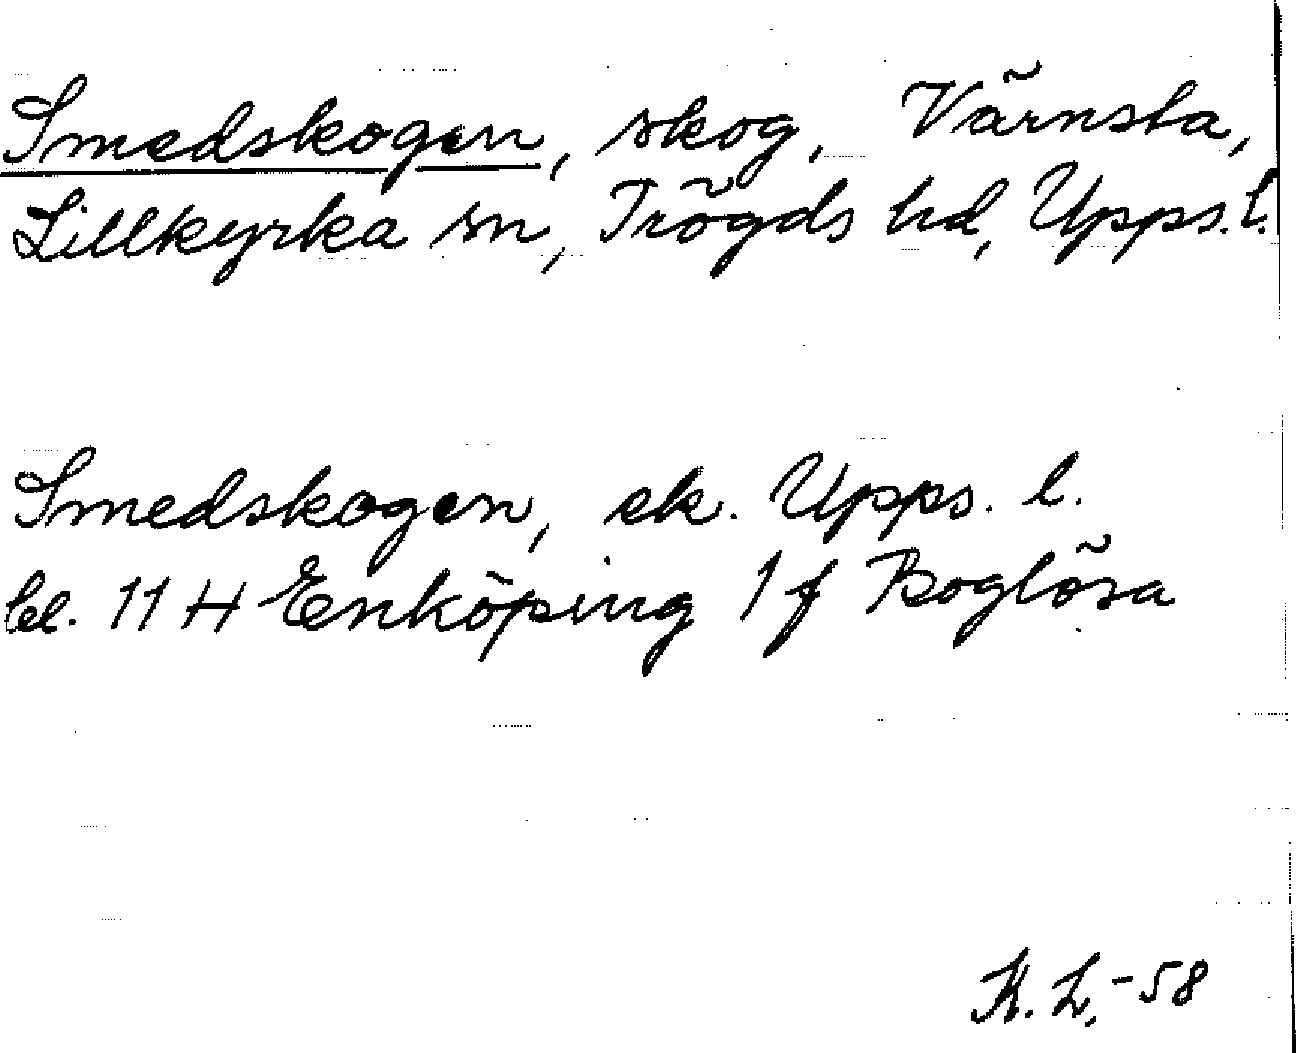 Smedskogen, skog, Värnsta,
Lillkyrka sn, Trögds hd, Upps. l.
Smedskogen, ek. Upps. l.
bl. 11 H Enköping 1 f Boglösa
K. L. -58